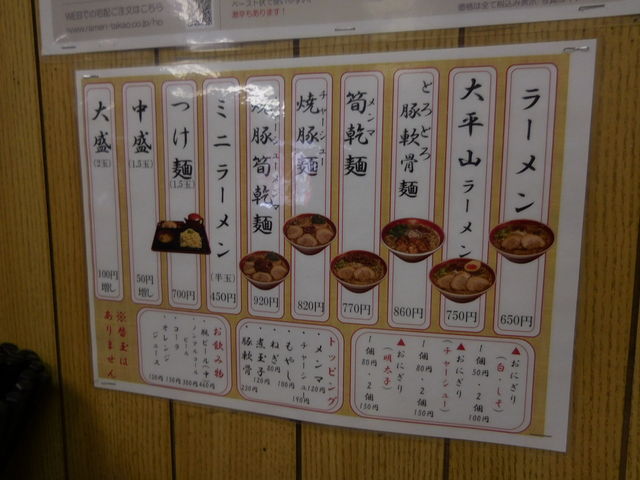 WEBでの宅配ご注文はこちら
www.ramen-takao.co.jp/ho
激辛もあります!
ラーメン
650円
大平山ラーメン
750円
とろとろ
豚軟骨麺
860円
筍乾麺
メンマ
770円
焼豚麺
チャーシュー
820円
焼豚筍乾麺
920円
ミニラーメン
(半玉)
450円
つけ麺
(1.5玉)
700円
中盛
(1.5玉)
50円
増し
大盛
(2玉)
100円
増し
▲おにぎり
(白・しそ)
1個 50円・2個 100円
▲おにぎり
(チャーシュー)
1個 80円・2個 150円
▲おにぎり
(明太子)
1個 80円・2個 150円
トッピング
・メンマ 120円
・チャーシュー 190円
・もやし 100円
・ねぎ 80円
・煮玉子 120円
・豚軟骨 230円
お飲み物
・コーラ 150円
・オレンジジュース
※替玉は
ありません